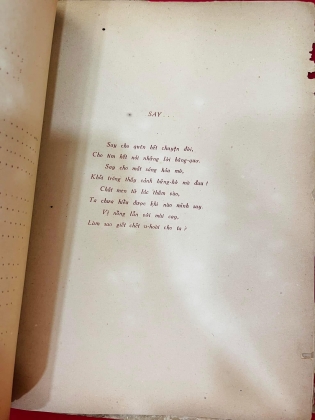 SAY
Say cho quên hết chuyện đời,
Cho tim hết nói những lời băng-quơ.
Say cho mắt sáng hóa mờ,
Khỏi trông thấy cảnh bẽng-hà mà đau!
Chất men từ lúc thấm vào,
Ta chưa hiểu được khi nào mình say.
Vị nồng lẫn với mùi cay,
Làm sao giết chết u-hoài cho ta?